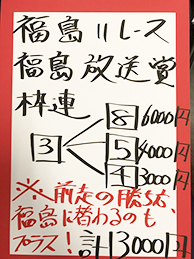 福島11レース
福島放送賞
枠連
3
8 6000円
5 4000円
4 3000円
※前走の勝ち方
福島に替わるのも
プラス！計13000円